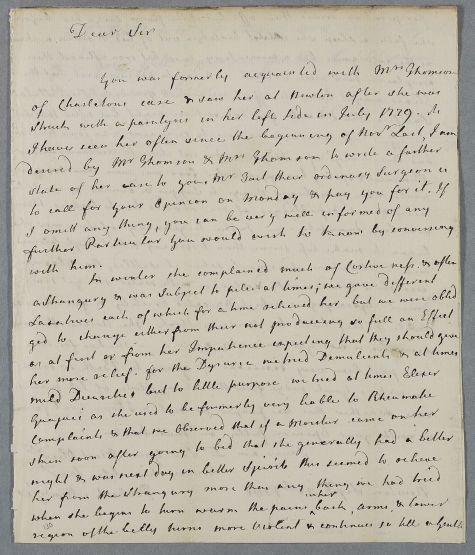 Dear Sir
You was formerly acquainted with Mrs Thomson
of Charletons case & saw her at Newton after she was
struck with a paralysis in her left side in July 1779. As
I have seen her often since the beginning of Novr Last, I am
desired by Mr Thomson & Mrs Thomson to write a further
state of her case to you, Mr their ordenary Surgeon is
to call for your Opinion on Monday & pay you for it. If
I omitt any thing, you can be very well informed of any
further Particular you would wish to know by conversing
with him.
In winter she complained much of Costive ness. & often
a Strangury & was Subject to piles at times; we gave different
Laxatives each of which for a time relieved her but we were oblid
ged to change either from their not producing so full an Effect
as at first or from her Impatience expecting that they should give
her more relief. for the Dysuria we tried Demulcents & at times
mild Diuretics but to little purpose we tried at times Elexer
Guajaci as she used to be formerly very liable to Rheumatic
Complaints & that we Observed that if a Moister came on her
skin soon after going to bed that she generally had a better
night & was next day in better Spirits this seemed to relieve
her from the Strangury more than any thing we had tried
when she begins to turn warm the pains in her back arms, & lower
region of the belly turns more Violent & continues so till a gentle